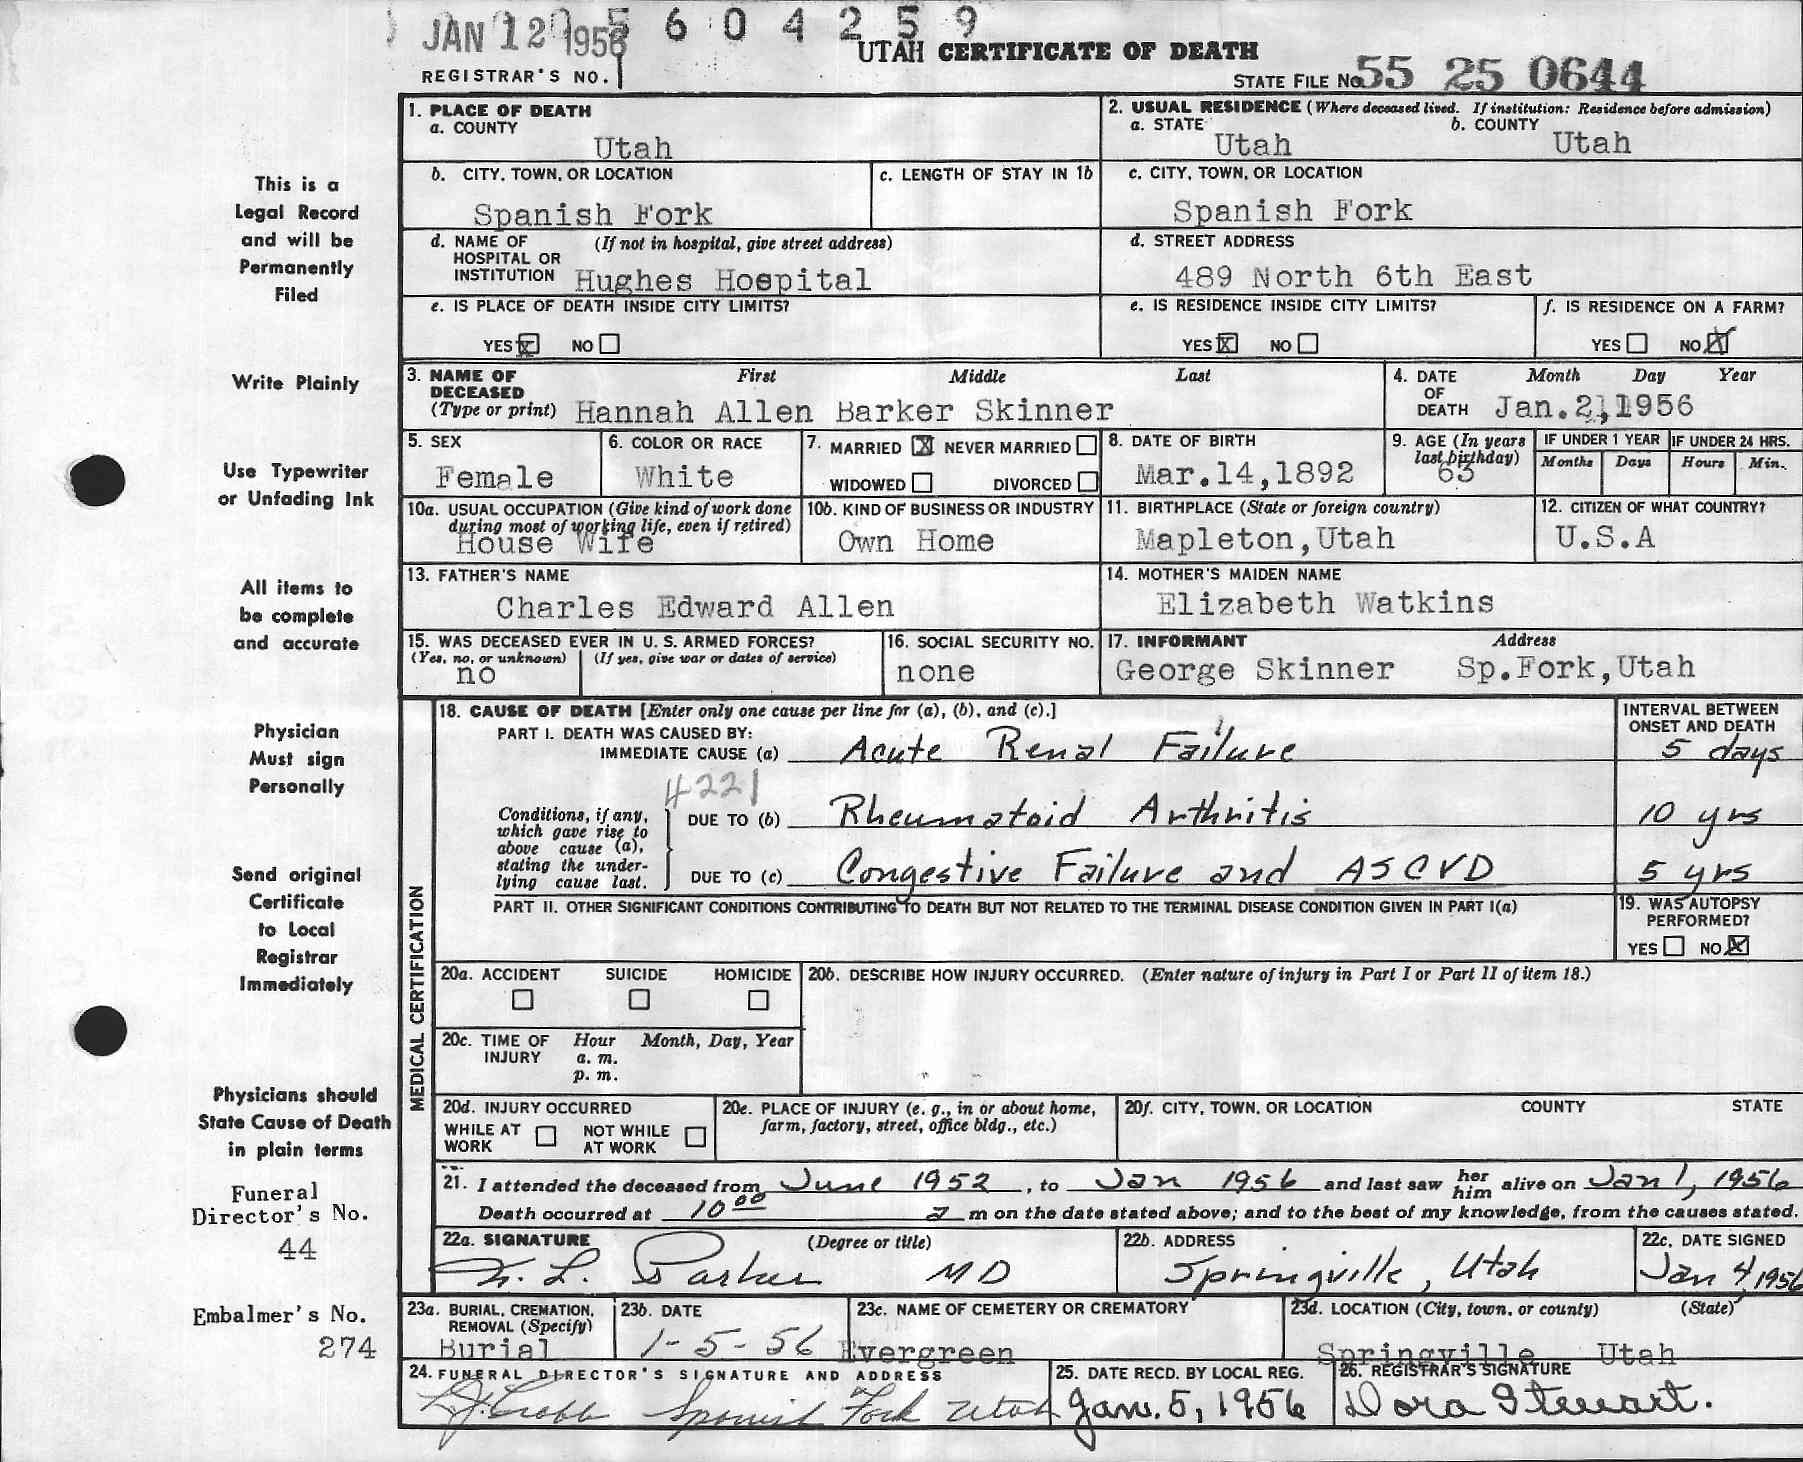 JAN 12 1956 5 6 0 4 2 5 9
UTAH CERTIFICATE OF DEATH
REGISTRAR'S NO. 1
STATE FILE No 55 25 0644
This is a
Legal Record
and will be
Permanently
Filed
Write Plainly
Use Typewriter
or Unfading Ink
All items to
be complete
and accurate
Physician
Must sign
Personally
Send original
Certificate
to Local
Registrar
Immediately
Physicians should
State Cause of Death
in plain terms
Funeral
Director's No.
44
Embalmer's No.
274
1. PLACE OF DEATH
a. COUNTY
Utah
2. USUAL RESIDENCE (Where deceased lived. If institution: Residence before admission)
a. STATE b. COUNTY
Utah Utah
b. CITY, TOWN, OR LOCATION
Spanish Fork
c. LENGTH OF STAY IN 1b
c. CITY, TOWN, OR LOCATION
Spanish Fork
d. NAME OF (If not in hospital, give street address)
HOSPITAL OR
INSTITUTION Hughes Hospital
d. STREET ADDRESS
489 North 6th East
e. IS PLACE OF DEATH INSIDE CITY LIMITS?
YES X NO
e. IS RESIDENCE INSIDE CITY LIMITS?
YES X NO
f. IS RESIDENCE ON A FARM?
YES NO X
3. NAME OF First Middle Last
DECEASED
(Type or print) Hannah Allen Barker Skinner
4. DATE Month Day Year
OF
DEATH Jan.2,1956
5. SEX
Female
6. COLOR OR RACE
White
7. MARRIED X NEVER MARRIED
WIDOWED DIVORCED
8. DATE OF BIRTH
Mar.14,1892
9. AGE (In years
last birthday)
63
IF UNDER 1 YEAR IF UNDER 24 HRS.
Months Days Hours Min.
10a. USUAL OCCUPATION (Give kind of work done
during most of working life, even if retired)
House Wife
10b. KIND OF BUSINESS OR INDUSTRY
Own Home
11. BIRTHPLACE (State or foreign country)
Mapleton,Utah
12. CITIZEN OF WHAT COUNTRY?
U.S.A
13. FATHER'S NAME
Charles Edward Allen
14. MOTHER'S MAIDEN NAME
Elizabeth Watkins
15. WAS DECEASED EVER IN U. S. ARMED FORCES?
(Yes, no, or unknown) (If yes, give war or dates of service)
no
16. SOCIAL SECURITY NO.
none
17. INFORMANT Address
George Skinner Sp.Fork,Utah
MEDICAL CERTIFICATION
18. CAUSE OF DEATH [Enter only one cause per line for (a), (b), and (c).]
INTERVAL BETWEEN
ONSET AND DEATH
PART I. DEATH WAS CAUSED BY:
IMMEDIATE CAUSE (a) Acute Renal Failure 5 days
4221
Conditions, if any,
which gave rise to
above cause (a),
stating the under-
lying cause last.
DUE TO (b) Rheumatoid Arthritis 10 yrs
DUE TO (c) Congestive Failure and ASCVD 5 yrs
PART II. OTHER SIGNIFICANT CONDITIONS CONTRIBUTING TO DEATH BUT NOT RELATED TO THE TERMINAL DISEASE CONDITION GIVEN IN PART I(a)
19. WAS AUTOPSY
PERFORMED?
YES NO X
20a. ACCIDENT SUICIDE HOMICIDE
20b. DESCRIBE HOW INJURY OCCURRED. (Enter nature of injury in Part I or Part II of item 18.)
20c. TIME OF Hour Month, Day, Year
INJURY a. m.
p. m.
20d. INJURY OCCURRED
WHILE AT NOT WHILE
WORK AT WORK
20e. PLACE OF INJURY (e. g., in or about home,
farm, factory, street, office bldg., etc.)
20f. CITY, TOWN, OR LOCATION COUNTY STATE
21. I attended the deceased from June 1952, to Jan 1956 and last saw her him alive on Jan 1, 1956
Death occurred at 10 00 a m on the date stated above; and to the best of my knowledge, from the causes stated.
22a. SIGNATURE (Degree or title)
L. Parker MD
22b. ADDRESS
Springville, Utah
22c. DATE SIGNED
Jan 4, 1956
23a. BURIAL, CREMATION,
REMOVAL (Specify)
Burial
23b. DATE
1-5-56
23c. NAME OF CEMETERY OR CREMATORY
Evergreen
23d. LOCATION (City, town, or county) (State)
Springville Utah
24. FUNERAL DIRECTOR'S SIGNATURE AND ADDRESS
Spanish Fork Utah
25. DATE RECD. BY LOCAL REG.
Jan. 5, 1956
26. REGISTRAR'S SIGNATURE
Dora Stewart.